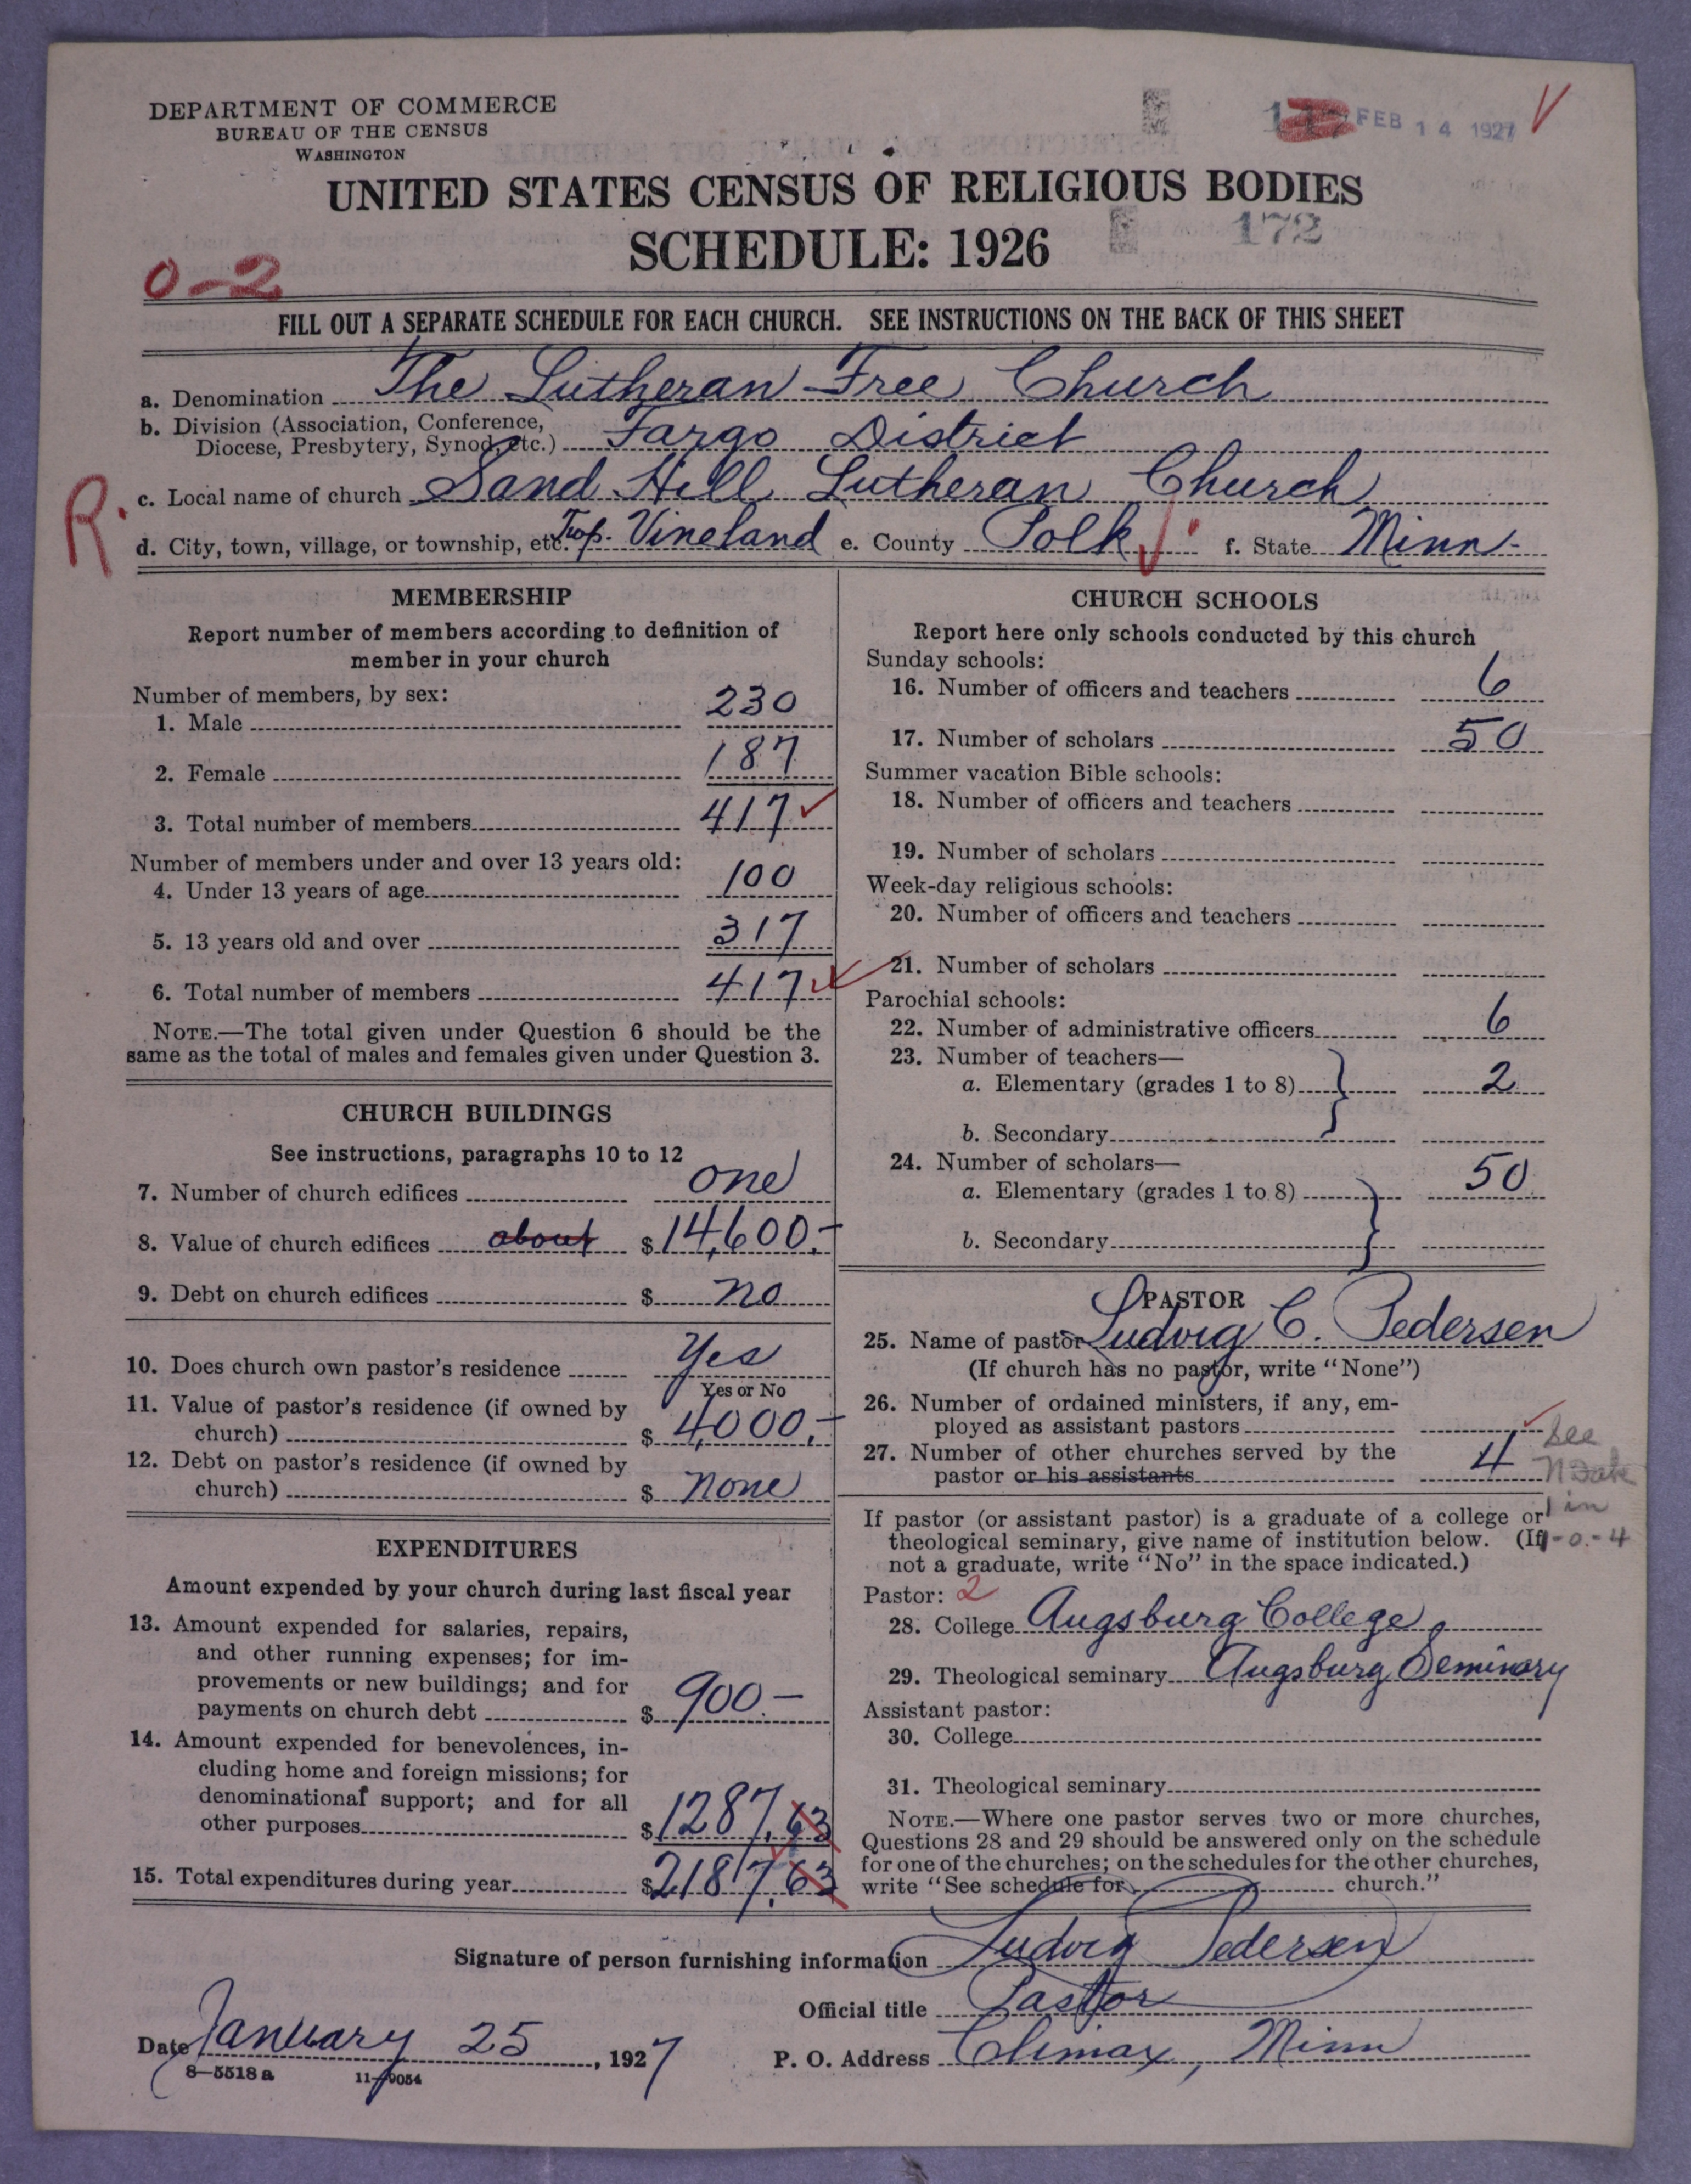 DEPARTMENT OF COMMERCE
BUREAU OF THE CENSUS
WASHINGTON
FEB 14 1927
UNITED STATES CENSUS OF RELIGIOUS BODIES
SCHEDULE: 1926
172
0-2
FILL OUT A SEPARATE SCHEDULE FOR EACH CHURCH. SEE INSTRUCTIONS ON THE BACK OF THIS SHEET
a. Denomination The Lutheran Free Church
b. Division (Association, Conference,
Diocese, Presbytery, Synod, etc.) Fargo District
R.
c. Local name of church Sand Hill Lutheran Church
d. City, town, village, or township, etc. Twp. Vineland e. County Polk f. State Minn.
MEMBERSHIP
Report number of members according to definition of
member in your church
Number of members, by sex:
1. Male 230
2. Female 187
3. Total number of members 417
Number of members under and over 13 years old:
4. Under 13 years of age 100
5. 13 years old and over 317
6. Total number of members 417
NOTE.—The total given under Question 6 should be the
same as the total of males and females given under Question 3.
CHURCH BUILDINGS
See instructions, paragraphs 10 to 12
7. Number of church edifices one
8. Value of church edifices about $14,600.-
9. Debt on church edifices $ no
10. Does church own pastor's residence Yes
Yes or No
11. Value of pastor's residence (if owned by
church) $ 4,000.-
12. Debt on pastor's residence (if owned by
church) $ none
EXPENDITURES
Amount expended by your church during last fiscal year
13. Amount expended for salaries, repairs,
and other running expenses; for im-
provements or new buildings; and for
payments on church debt $ 900.-
14. Amount expended for benevolences, in-
cluding home and foreign missions; for
denominational support; and for all
other purposes $1287.63
15. Total expenditures during year $2187.63
CHURCH SCHOOLS
Report here only schools conducted by this church
Sunday schools:
16. Number of officers and teachers 6
17. Number of scholars 50
Summer vacation Bible schools:
18. Number of officers and teachers
19. Number of scholars
Week-day religious schools:
20. Number of officers and teachers
21. Number of scholars
Parochial schools:
22. Number of administrative officers 6
23. Number of teachers—
a. Elementary (grades 1 to 8) 2
b. Secondary
24. Number of scholars—
a. Elementary (grades 1 to 8) 50
b. Secondary
PASTOR
25. Name of pastor Ludvig C. Pedersen
(If church has no pastor, write "None")
26. Number of ordained ministers, if any, em-
ployed as assistant pastors
27. Number of other churches served by the
pastor or his assistants 4
See
N Dak
1 in
1-0-4
If pastor (or assistant pastor) is a graduate of a college or
theological seminary, give name of institution below. (If
not a graduate, write "No" in the space indicated.)
Pastor: 2
28. College Augsburg College
29. Theological seminary Augsburg Seminary
Assistant pastor:
30. College
31. Theological seminary
NOTE.—Where one pastor serves two or more churches,
Questions 28 and 29 should be answered only on the schedule
for one of the churches; on the schedules for the other churches,
write "See schedule for church."
Signature of person furnishing information Ludvig Pedersen
Official title Pastor
Date January 25, 1927
P. O. Address Climax, Minn
8—5518 a 11—9054